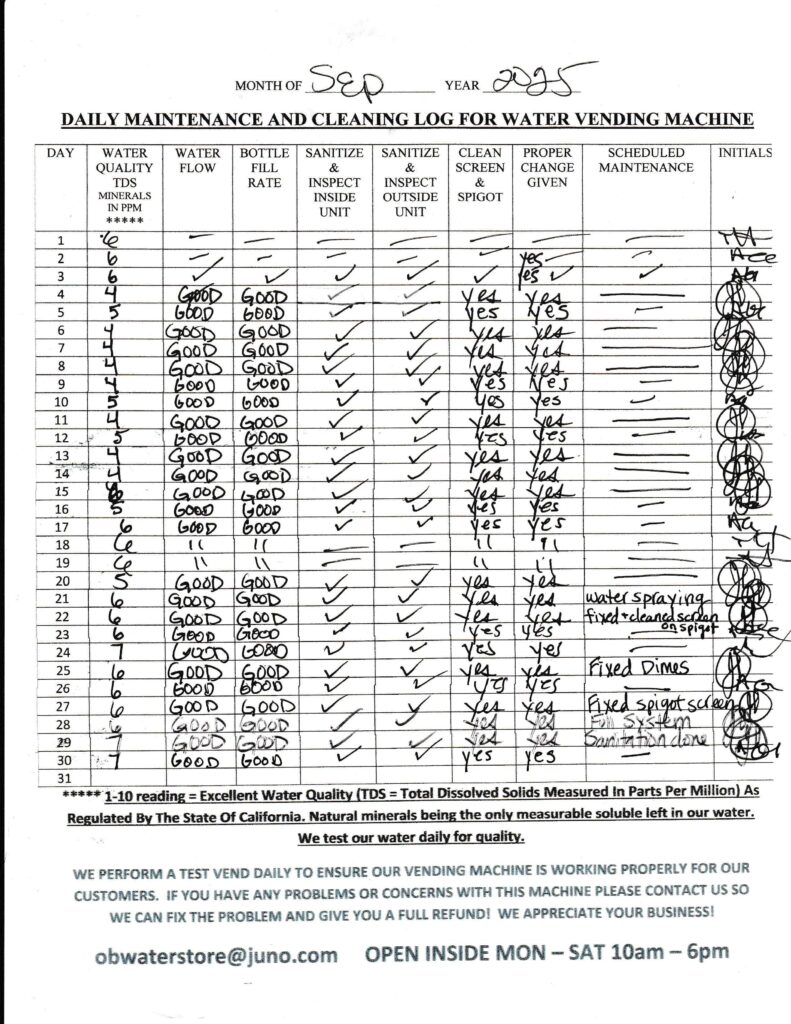 MONTH OF Sep YEAR 2025
DAILY MAINTENANCE AND CLEANING LOG FOR WATER VENDING MACHINE
DAY WATER QUALITY TDS MINERALS IN PPM ***** WATER FLOW BOTTLE FILL RATE SANITIZE & INSPECT INSIDE UNIT SANITIZE & INSPECT OUTSIDE UNIT CLEAN SCREEN & SPIGOT PROPER CHANGE GIVEN SCHEDULED MAINTENANCE INITIALS
1 6 — — — — — — —
2 6 — — — — — yes — —
3 6 ✓ ✓ ✓ ✓ ✓ yes ✓ ✓
4 4 GOOD GOOD ✓ ✓ yes yes —
5 5 GOOD GOOD ✓ ✓ yes yes —
6 4 GOOD GOOD ✓ ✓ yes yes —
7 4 GOOD GOOD ✓ ✓ yes yes —
8 4 GOOD GOOD ✓ ✓ yes yes —
9 4 GOOD GOOD ✓ ✓ yes yes —
10 5 GOOD GOOD ✓ ✓ yes yes ✓
11 4 GOOD GOOD ✓ ✓ yes yes —
12 5 GOOD GOOD ✓ ✓ yes yes —
13 4 GOOD GOOD ✓ ✓ yes yes —
14 4 GOOD GOOD ✓ ✓ yes yes —
15 GOOD GOOD ✓ ✓ yes yes —
16 5 GOOD GOOD ✓ ✓ yes yes —
17 6 GOOD GOOD ✓ ✓ yes yes —
18 6 " " — — " " —
19 6 " " — — " " —
20 5 GOOD GOOD ✓ ✓ yes yes —
21 6 GOOD GOOD ✓ ✓ yes yes water spraying
22 6 GOOD GOOD ✓ ✓ yes yes fixed + cleaned screen
23 6 GOOD GOOD ✓ ✓ yes yes on spigot
24 7 GOOD GOOD ✓ ✓ yes yes —
25 6 GOOD GOOD ✓ ✓ yes yes Fixed Dimes
26 6 GOOD GOOD ✓ ✓ yes yes —
27 6 GOOD GOOD ✓ ✓ yes yes Fixed spigot screen
28 6 GOOD GOOD ✓ ✓ yes yes Full System
29 7 GOOD GOOD ✓ ✓ yes yes Sanitation done
30 7 GOOD GOOD ✓ ✓ yes yes —
31
***** 1-10 reading = Excellent Water Quality (TDS = Total Dissolved Solids Measured In Parts Per Million) As
Regulated By The State Of California. Natural minerals being the only measurable soluble left in our water.
We test our water daily for quality.
WE PERFORM A TEST VEND DAILY TO ENSURE OUR VENDING MACHINE IS WORKING PROPERLY FOR OUR
CUSTOMERS. IF YOU HAVE ANY PROBLEMS OR CONCERNS WITH THIS MACHINE PLEASE CONTACT US SO
WE CAN FIX THE PROBLEM AND GIVE YOU A FULL REFUND! WE APPRECIATE YOUR BUSINESS!
obwaterstore@juno.com OPEN INSIDE MON – SAT 10am – 6pm